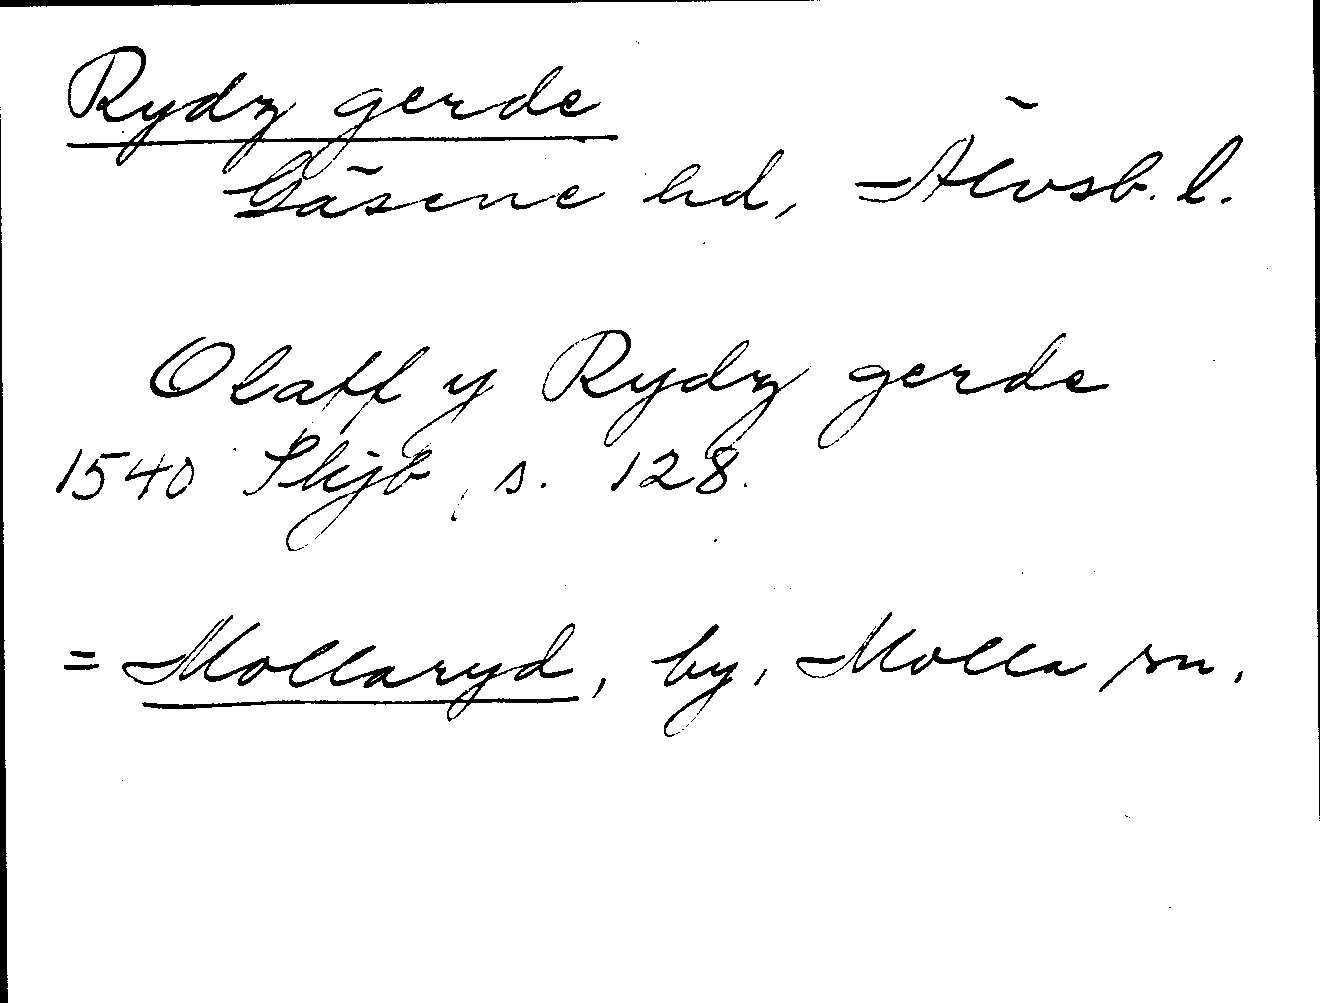 Rydz gerde
Gäsene hd, Älvsb. l.
Olaff y Rydz gerde
1540 Skjb, s. 128.
= Mollaryd, by, Molla sn.